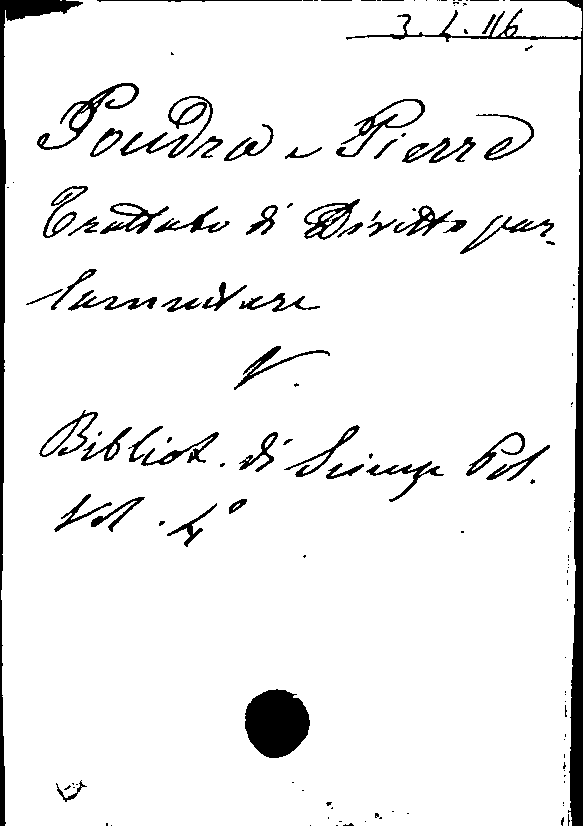 3. L. 116.
Poudra e Pierre
Trattato di Diritto par-
lamentare
V.
Bibliot. di Scienze Pol.
Vol. 4°